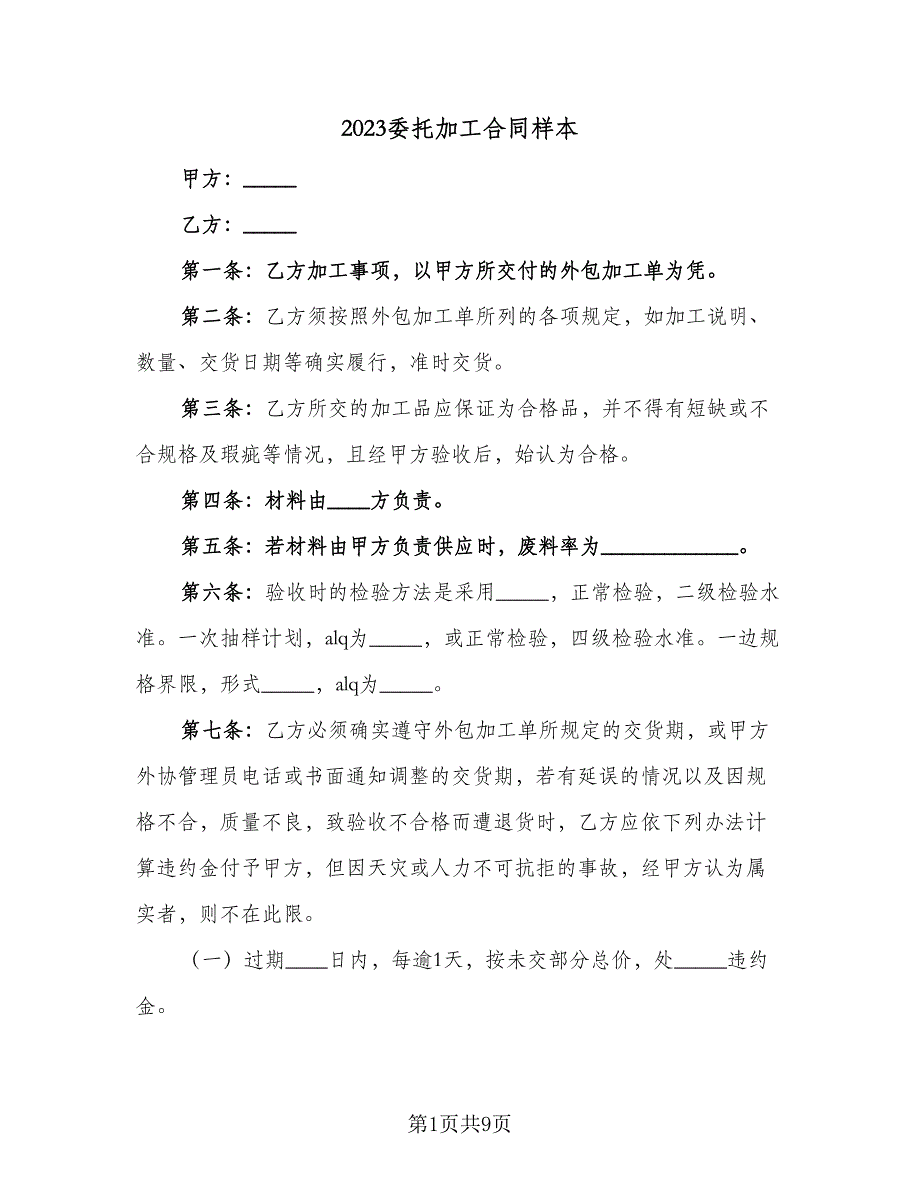 2023委托加工合同样本
甲方：_____
乙方：_____
第一条：乙方加工事项，以甲方所交付的外包加工单为凭。
第二条：乙方须按照外包加工单所列的各项规定，如加工说明、
数量、交货日期等确实履行，准时交货。
第三条：乙方所交的加工品应保证为合格品，并不得有短缺或不
合规格及瑕疵等情况，且经甲方验收后，始认为合格。
第四条：材料由____方负责。
第五条：若材料由甲方负责供应时，废料率为_____________。
第六条：验收时的检验方法是采用_____，正常检验，二级检验水
准。一次抽样计划，alq为_____，或正常检验，四级检验水准。一边规
格界限，形式_____，alq为_____。
第七条：乙方必须确实遵守外包加工单所规定的交货期，或甲方
外协管理员电话或书面通知调整的交货期，若有延误的情况以及因规
格不合，质量不良，致验收不合格而遭退货时，乙方应依下列办法计
算违约金付予甲方，但因天灾或人力不可抗拒的事故，经甲方认为属
实者，则不在此限。
（一）过期____日内，每逾1天，按未交部分总价，处_____违约
金。
第1页共9页